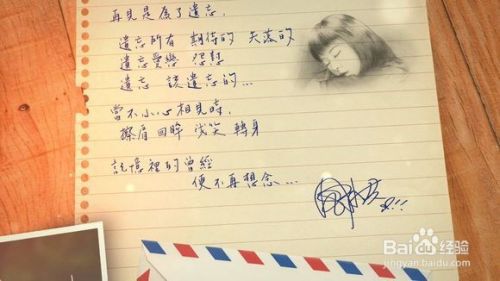 再見是為了遺忘,
遺忘所有 期待的 失落的
遺忘愛戀 怨懟
遺忘 該遺忘的...
當不小心相見時,
擦肩 回眸 淺笑 轉身
記憶裡的曾經
便不再想念...
Baidu经验
jingyan.baidu.com